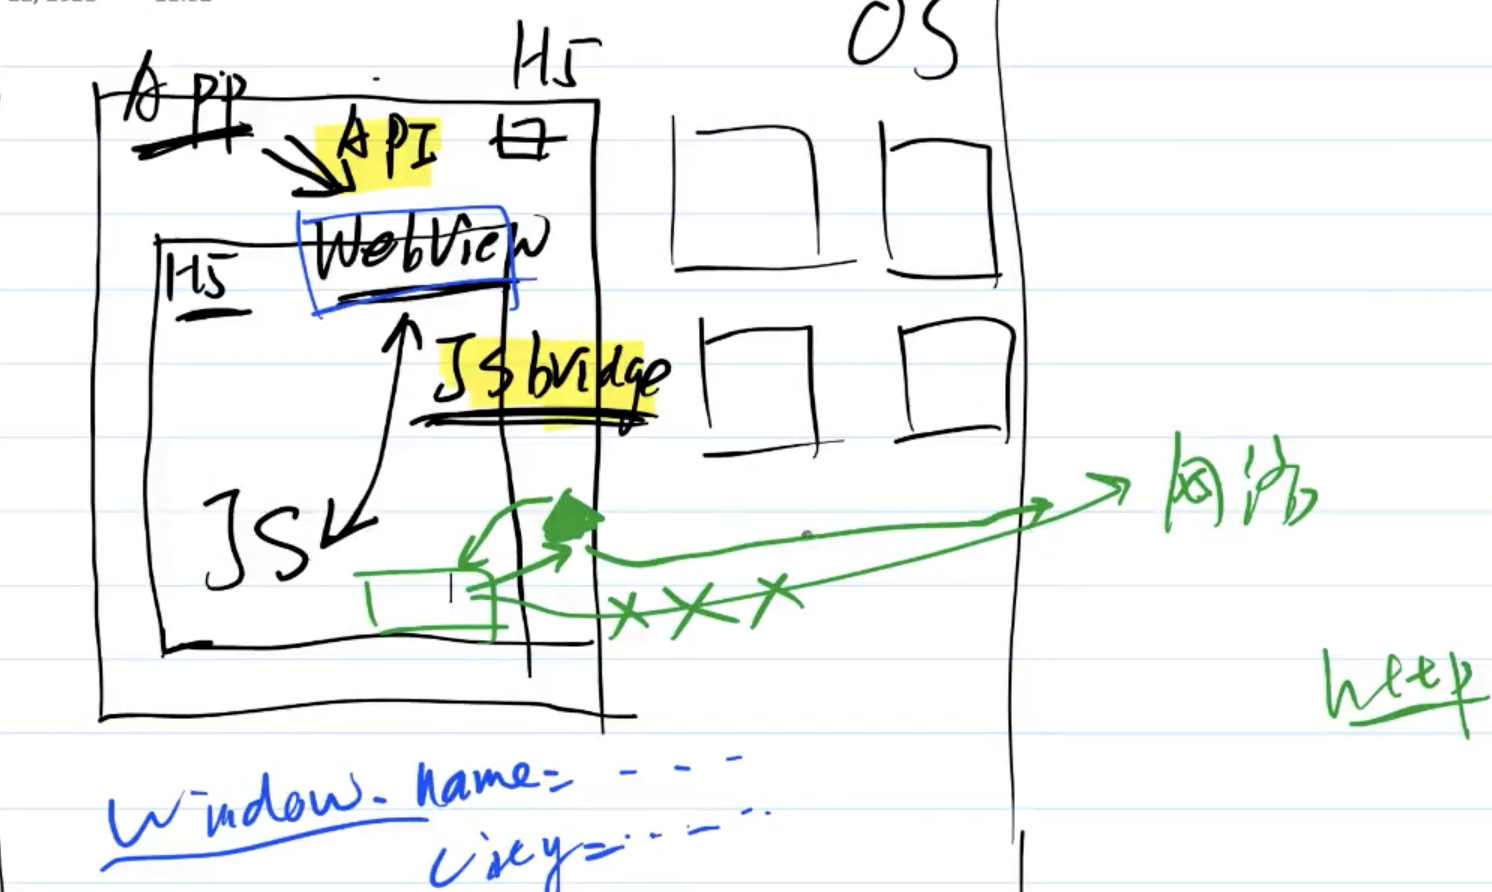 H5
OS
App
API
WebView
H5
JSbridge
JS
网络
http
window.name= - - - -
city=